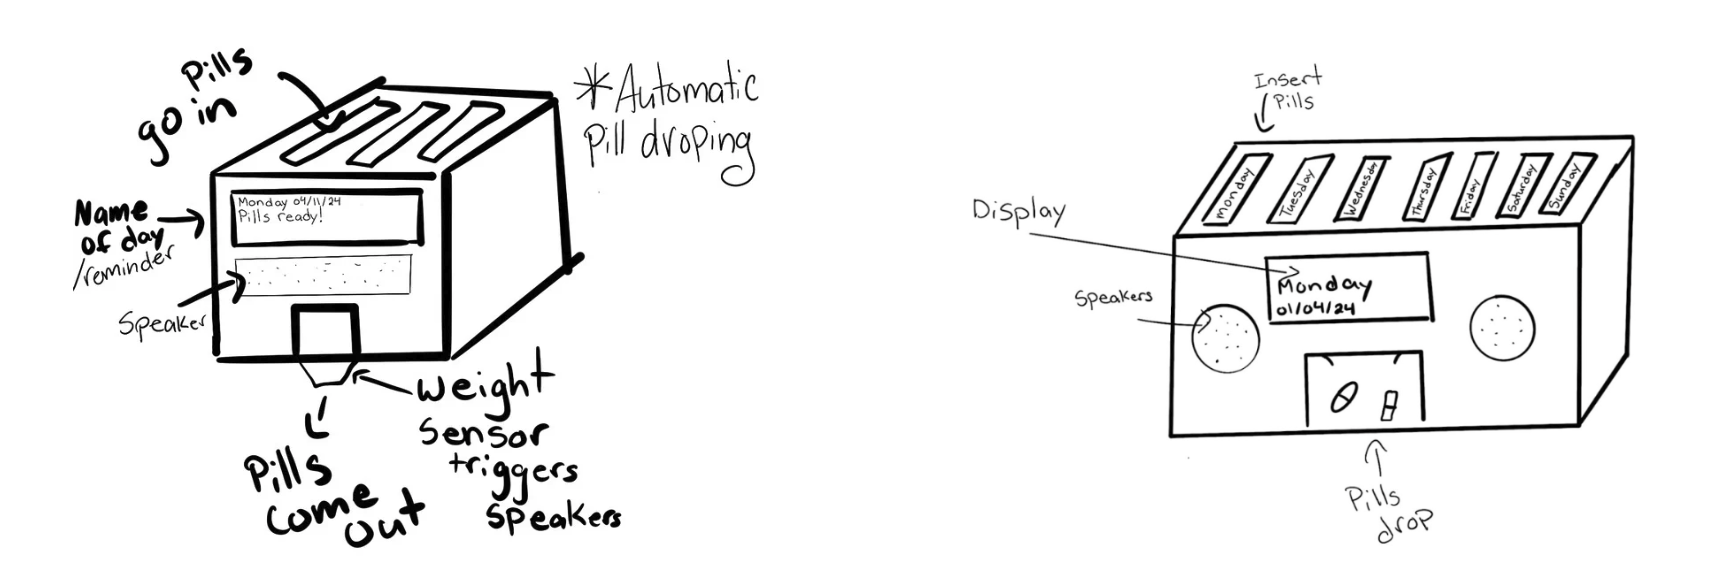 Pills
go in
*Automatic
Pill droping
Name
of day
/reminder
Monday 04/11/24
Pills ready!
Speaker
Weight
Sensor
triggers
Speakers
Pills
Come
Out
Insert
Pills
Monday
Tuesday
Wednesday
Thursday
Friday
Saturday
Sunday
Display
Monday
01/04/24
Speakers
Pills
drop